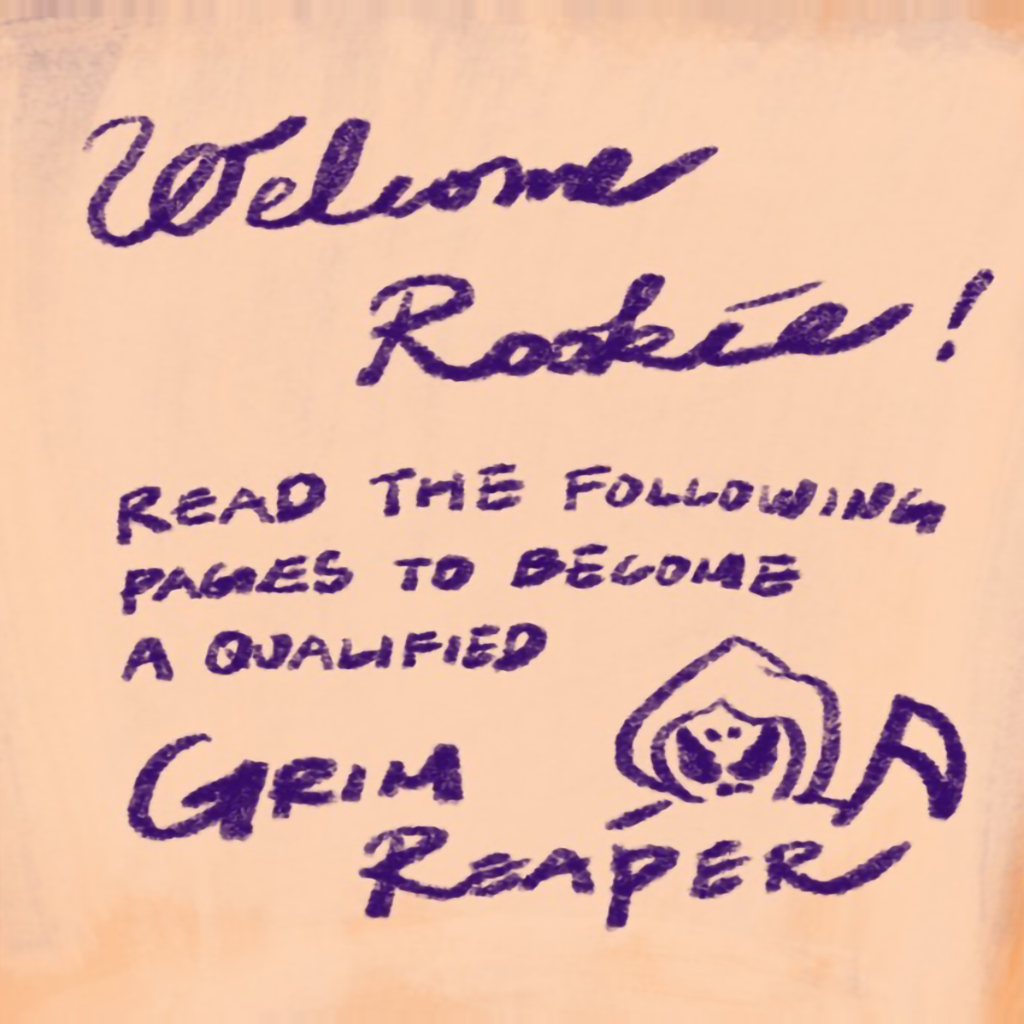 Welcome
Rookie!
READ THE FOLLOWING
PAGES TO BECOME
A QUALIFIED
GRIM
REAPER